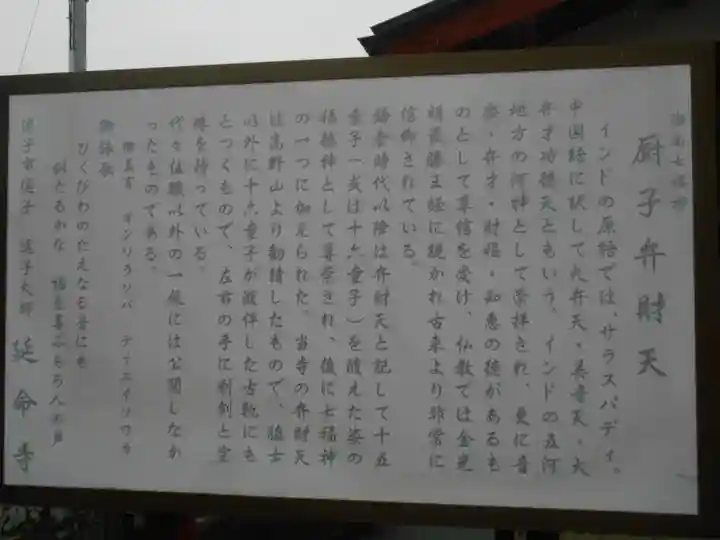 湘南七福神
厨子弁財天
インドの原語では、サラスバティ。
中国語に訳して大弁天・美音天・大
弁才功徳天ともいう。インドの五河
地方の河神として崇拝され、更に音
楽・弁才・財福・知恵の徳があるも
のとして尊信を受け、仏教では金光
明最勝王経に説かれ古来より非常に
信仰されている。
鎌倉時代以降は弁財天と記して十五
童子(又は十六童子)を従えた姿の
福徳神として尊崇され、後に七福神
の一つに加えられた。当寺の弁財天
は高野山より勧請したもので、脇士
以外に十六童子が従伴した古軌にも
とづくもので、左右の手に利剣と宝
珠を持っている。
代々住職以外の一般には公開しなか
ったものである。
御真言 オンソラソバ テイエイソワカ
御詠歌
びくびわのたえなる音にも
逗子市逗子 逗子大師 延命寺